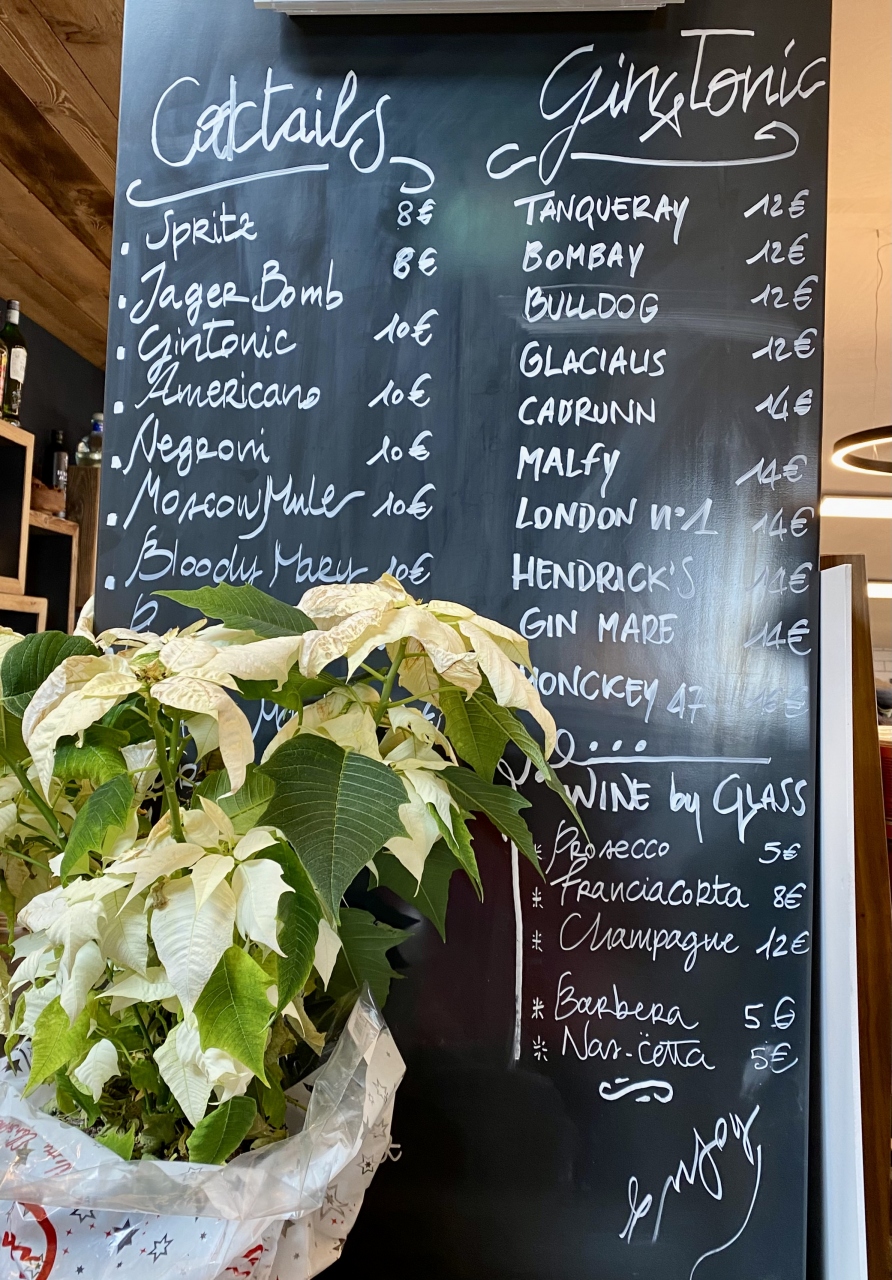 Cocktails
Spritz 8€
Jager Bomb 8€
Gintonic 10€
Americano 10€
Negroni 10€
Moscow Mule 10€
Bloody Mary 10€
Gin & Tonic
TANQUERAY 12€
BOMBAY 12€
BULLDOG 12€
GLACIALIS 12€
CAORUNN 14€
MALFY 14€
LONDON n°1 14€
HENDRICK'S 14€
GIN MARE 14€
MONCKEY 47
WINE by GLASS
Prosecco 5€
Franciacorta 8€
Champagne 12€
Barbera 5€
Nas-cëtta 5€
enjoy